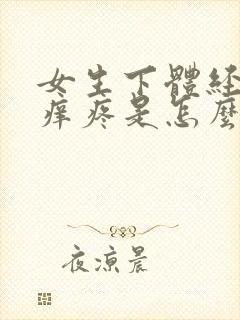 女生下體經
痒疼是怎麼
夜涼晨